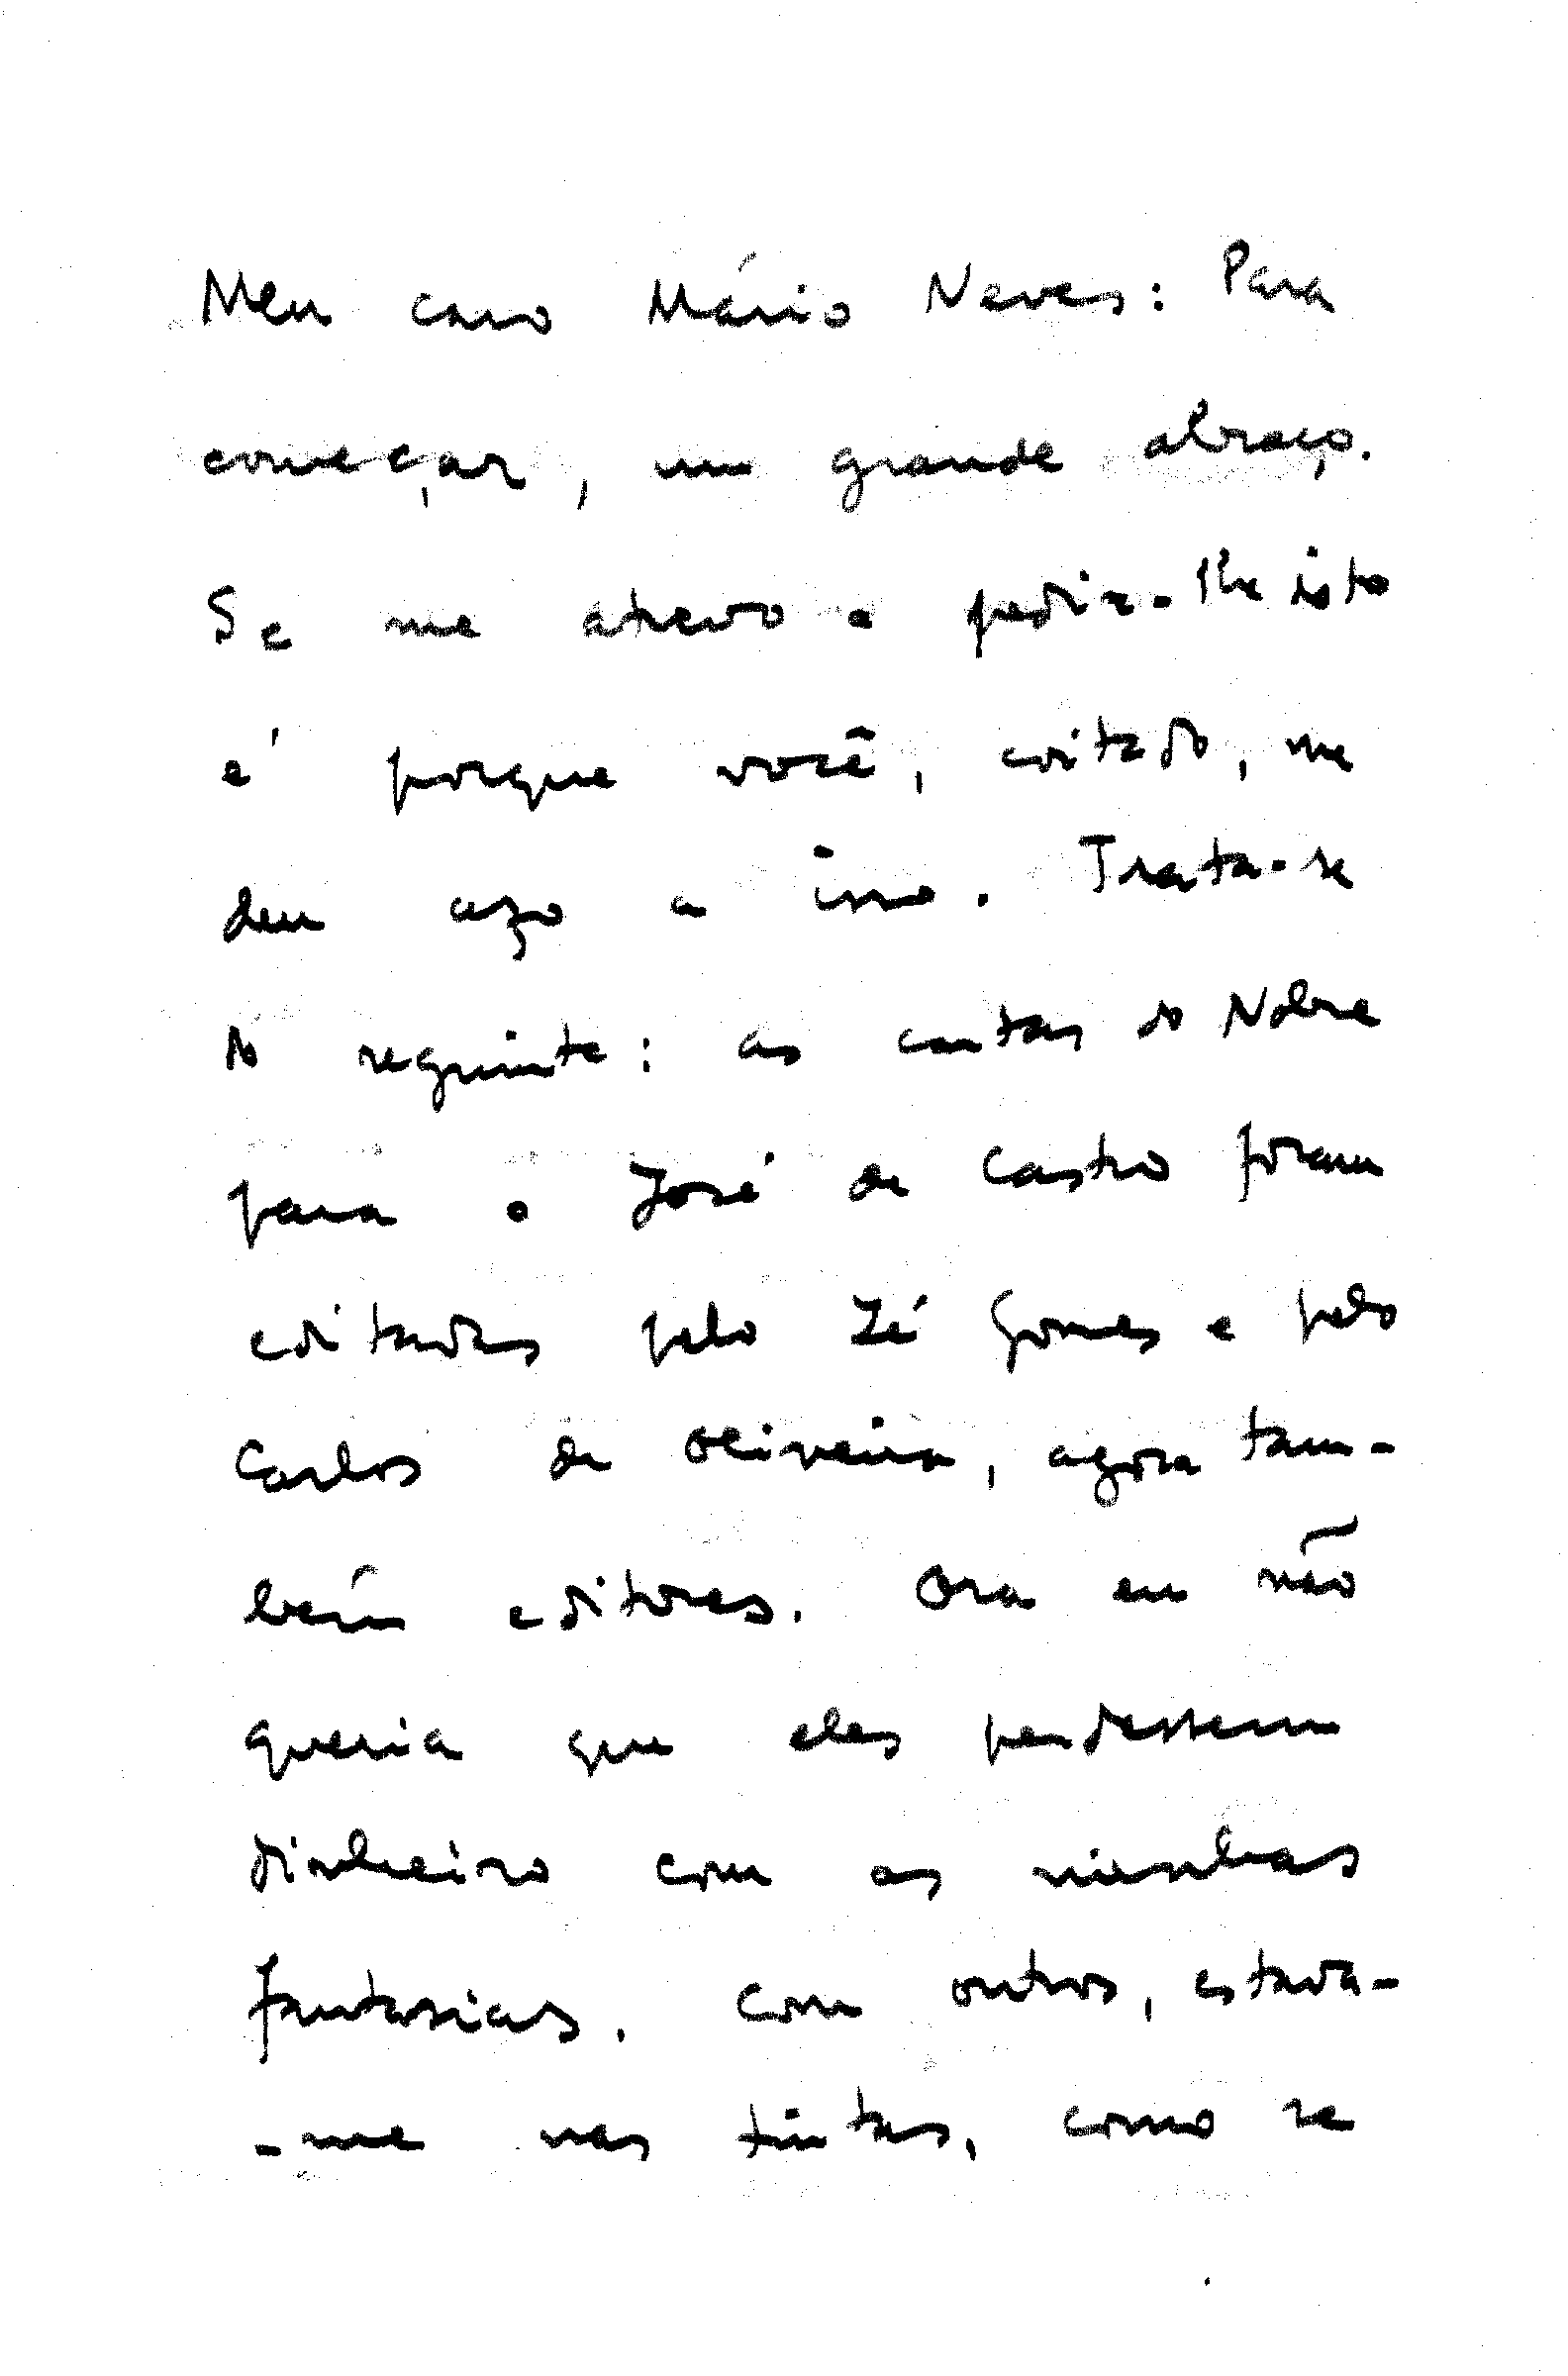 Meu caro Mário Neves: Para
começar, um grande abraço.
Se me atrevo a pedir-lhe isto
é porque você, coitado, me
deu azo a isso. Trata-se
do seguinte: as cartas do Nobre
para o José de Castro foram
editadas pelo Zé Gomes e pelo
Carlos de Oliveira, agora tam-
bém editores. Ora eu não
queria que eles perdessem
dinheiro com as minhas
fantasias. Com outros, estava-
-me nas tintas, como se